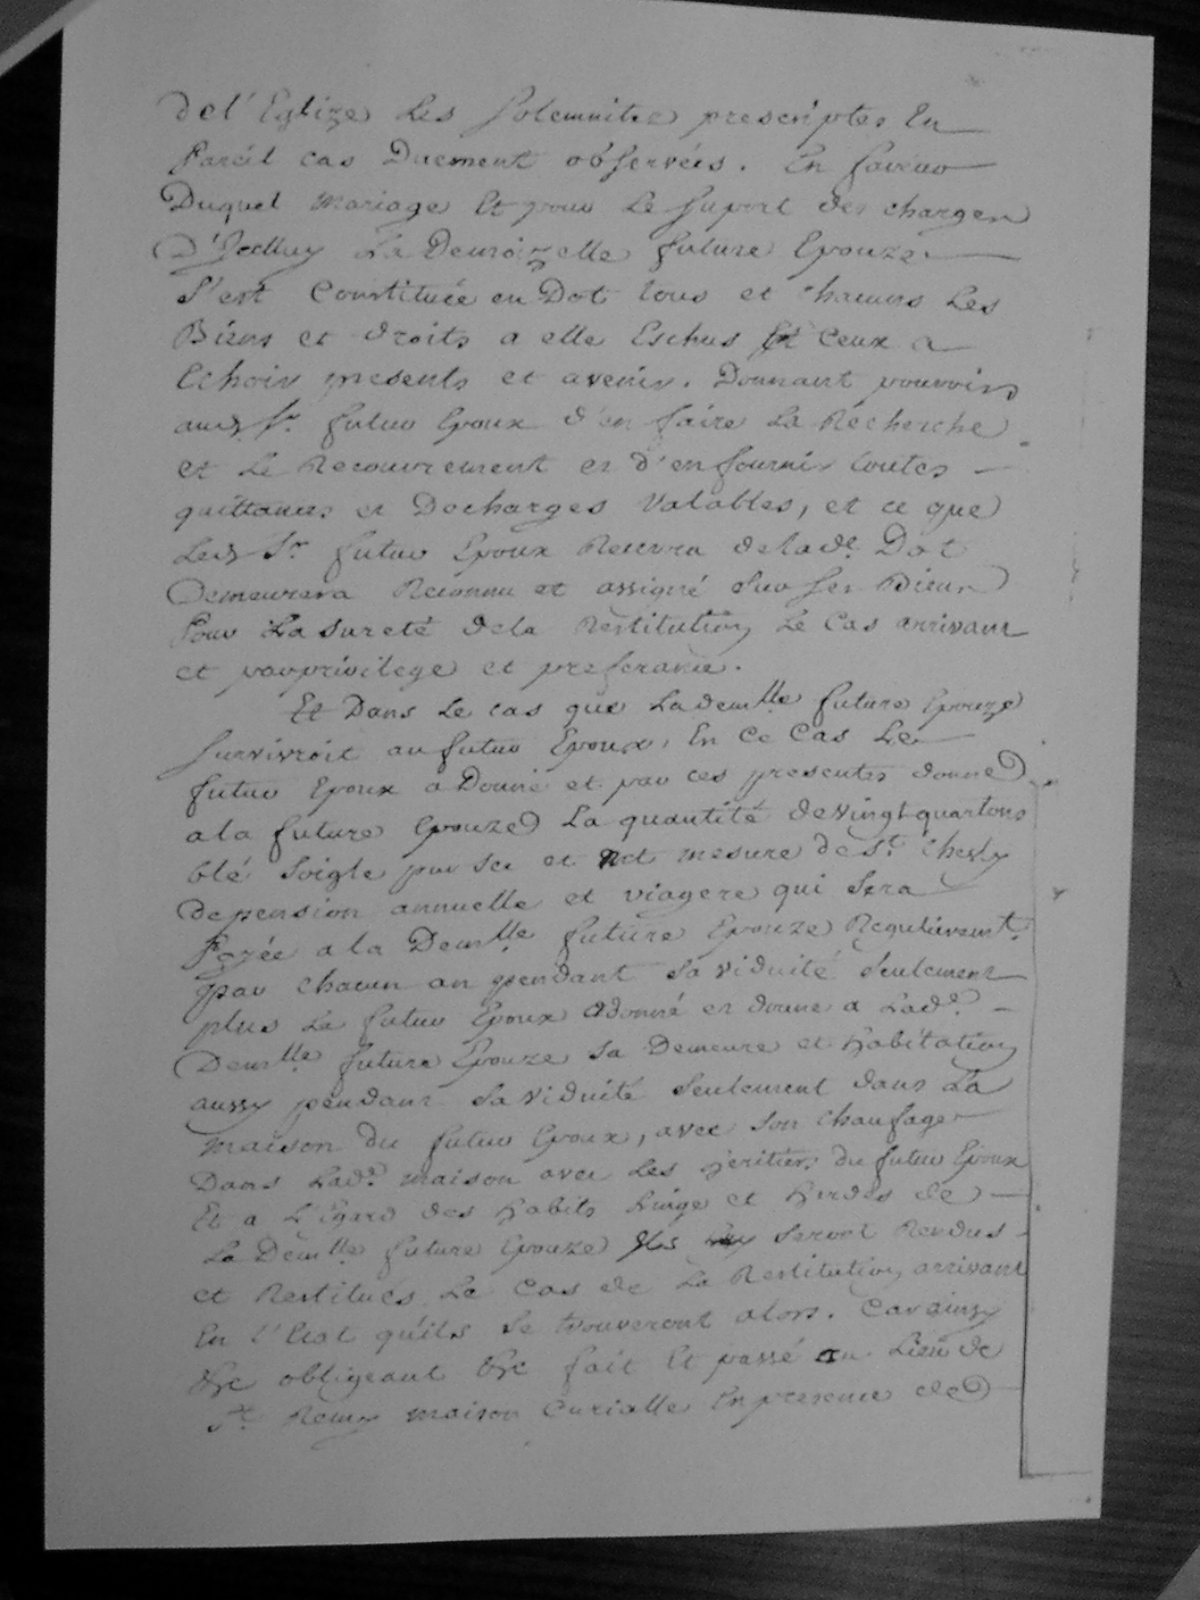 del'Eglize les solemnitez prescriptes En
Pareil cas Duement observées. En faveur
Duquel mariage Et pour le suport des charges
D'Jcelluy La Demoizelle future Epouze
s'est Constituée en Dot tous et chacuns les
Biens et droits a elle Eschus Et ceux a
Echoir presents et avenir. Donnant pouvoir
aud. Sr. futur Epoux d'en faire La Recherche
et le Recouvrement et d'en fournir toutes
quittances et Decharges valables, et ce que
Led. Sr. futur Epoux Recevra delade. Dot
Demeurera Reconnu et assigné sur ses Biens
Pour La sureté dela Restitution le Cas arrivant
et par privilege et preferance.
Et Dans Le cas que Lademlle future Epouze
survivroit au futur Epoux, En ce Cas Le
futur Epoux a Donné et par ces presentes donne
a la future Epouze La quantité devingt quartons
blé soigle pur sec et net mesure de St. Chesly
depension annuelle et viagere qui sera
Payée a la Demlle future Epouze Regulieremt.
par chacun an pendant sa viduité seulement
plus Le futur Epoux adonné et donne a Lade.
Demlle future Epouze sa Demeure et habitation
aussy pendant sa viduité seulement dans La
maison du futur Epoux, avec son chaufage
Dans Lade. maison avec les heritiers du futur Epoux
Et a L'égard des habits Linge et hardes de
La Demlle future Epouze Jls seront Rendus
et Restitués Le Cas de La Restitution arrivant
En l'Etat quils se trouveront alors. Car ainsy
&c obligeant &c fait Et passé au Lieu de
St. Remy maison Curialle En presence de